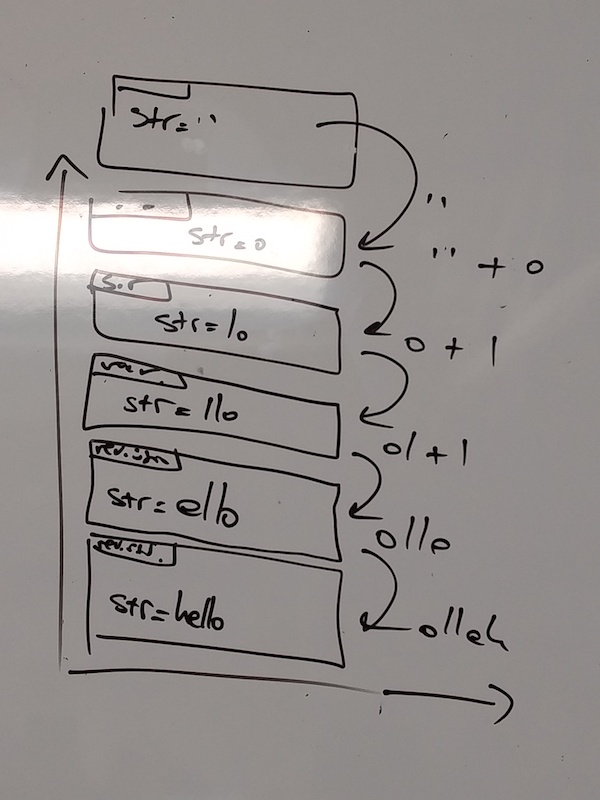 str=''
''
str=o
'' + o
s.r
str=lo
o + l
str=llo
ol+l
str=ello
olle
str=hello
olleh